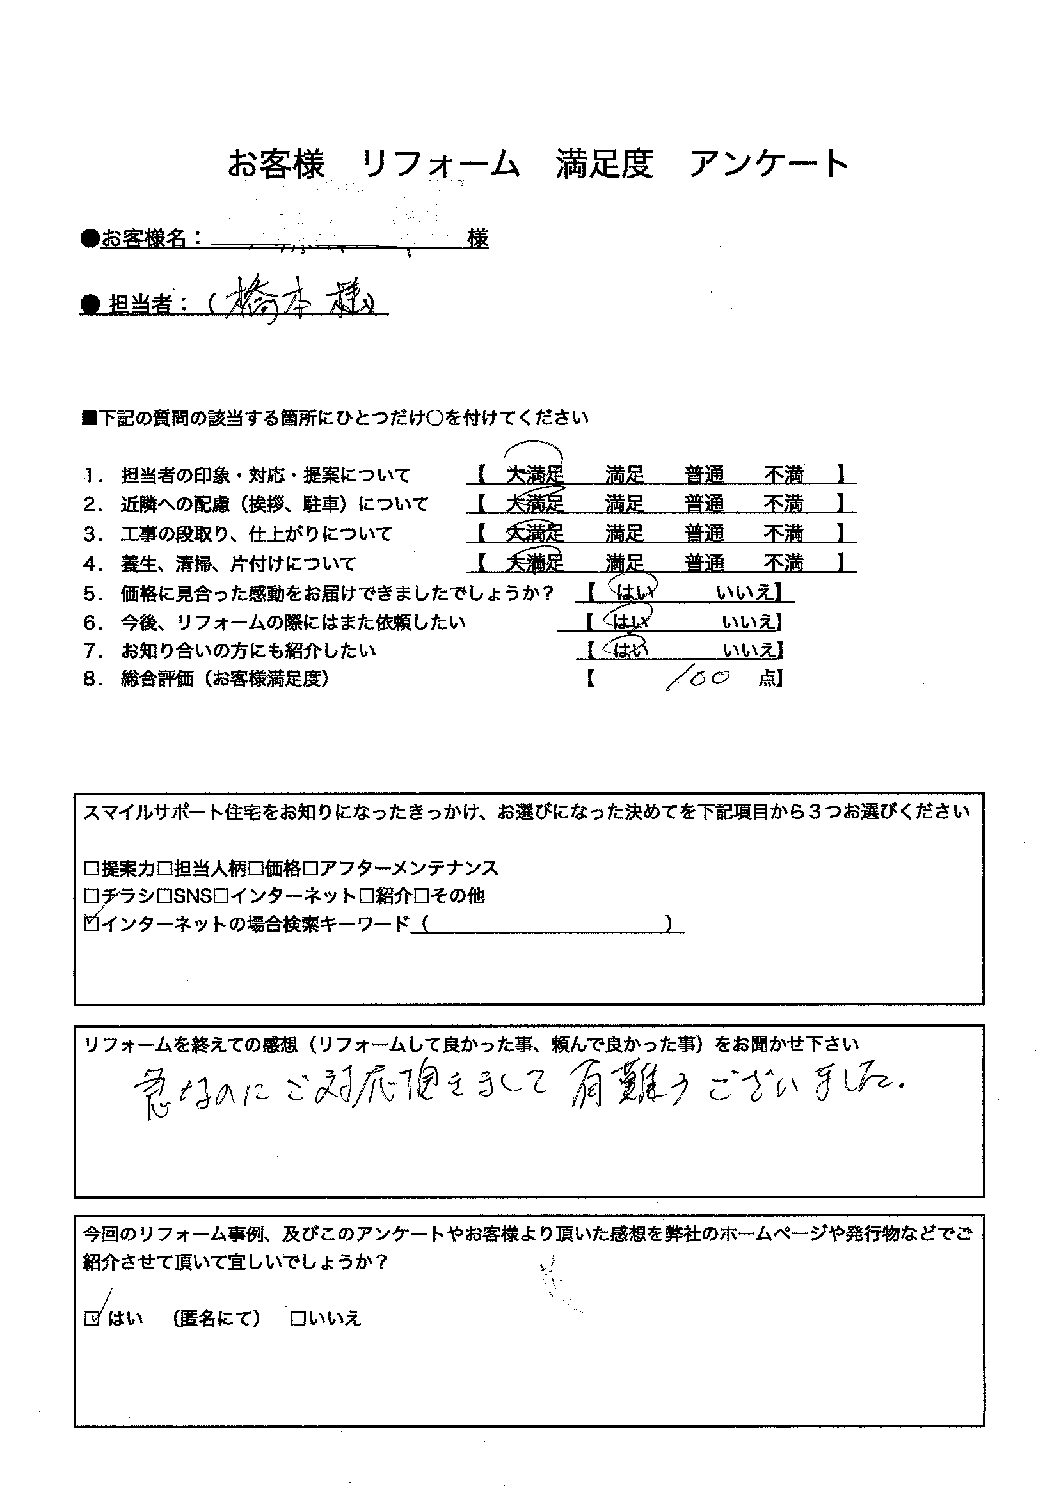 お客様　リフォーム　満足度　アンケート
●お客様名：　　　　　　　　様
●担当者：（橋本様）
■下記の質問の該当する箇所にひとつだけ○を付けてください
1．担当者の印象・対応・提案について　【　大満足　満足　普通　不満　】
2．近隣への配慮（挨拶、駐車）について　【　大満足　満足　普通　不満　】
3．工事の段取り、仕上がりについて　【　大満足　満足　普通　不満　】
4．養生、清掃、片付けについて　【　大満足　満足　普通　不満　】
5．価格に見合った感動をお届けできましたでしょうか？　【　はい　いいえ】
6．今後、リフォームの際にはまた依頼したい　【　はい　いいえ】
7．お知り合いの方にも紹介したい　【　はい　いいえ】
8．総合評価（お客様満足度）　【　100　点】
スマイルサポート住宅をお知りになったきっかけ、お選びになった決めてを下記項目から３つお選びください
□提案力□担当人柄□価格□アフターメンテナンス
□チラシ□SNS□インターネット□紹介□その他
☑インターネットの場合検索キーワード（　　　　　　　　）
リフォームを終えての感想（リフォームして良かった事、頼んで良かった事）をお聞かせ下さい
急なのにご対応頂きまして有難うございました.
今回のリフォーム事例、及びこのアンケートやお客様より頂いた感想を弊社のホームページや発行物などでご
紹介させて頂いて宜しいでしょうか？
☑はい　（匿名にて）　□いいえ